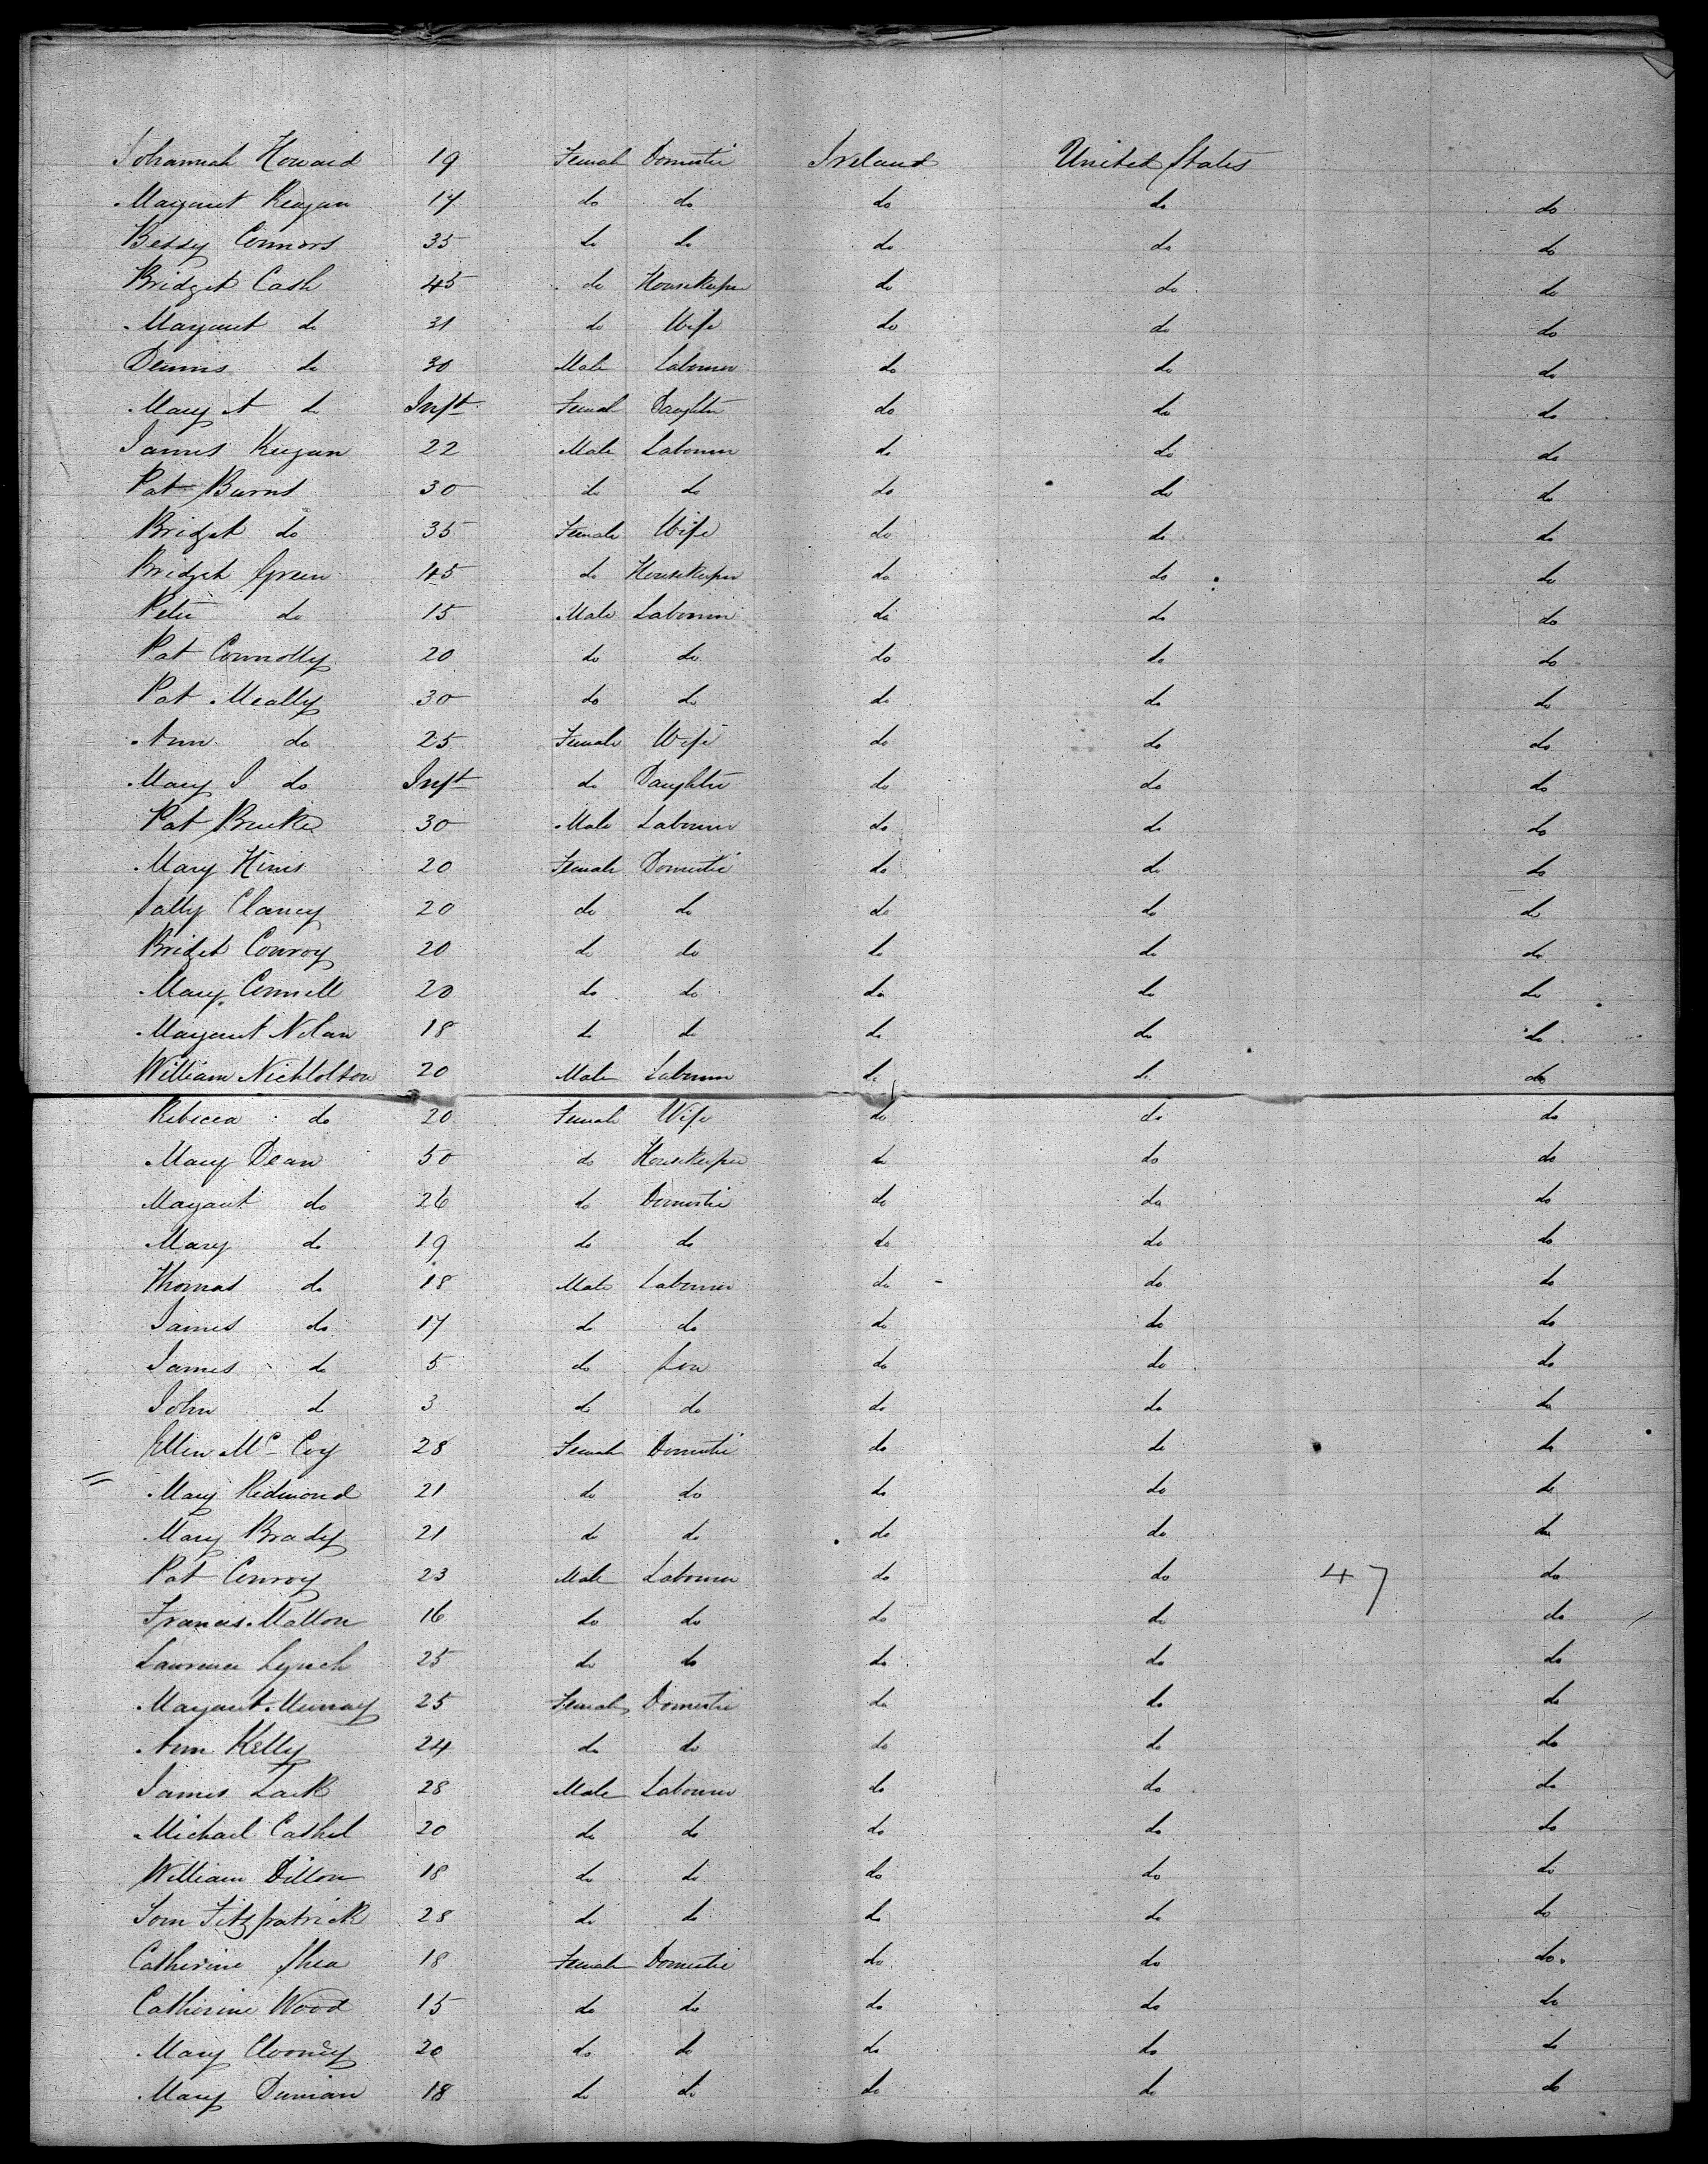 Johannah Howard 19 Female Domestic Ireland United States
Margaret Reagan 17 do do do do do
Bessy Connors 35 do do do do do
Bridget Cash 45 do Housekeeper do do do
Margaret do 31 do Wife do do do
Dennis do 30 Male Labourer do do do
Mary A do Inft Female Daughter do do do
James Keegan 22 Male Labourer do do do
Pat Burns 30 do do do do do
Bridget do 35 Female Wife do do do
Bridget Green 45 do Housekeeper do do do
Peter do 15 Male Labourer do do do
Pat Connolly 20 do do do do do
Pat Meally 30 do do do do do
Ann do 25 Female Wife do do do
Mary J do Inft do Daughter do do do
Pat Burke 30 Male Labourer do do do
Mary Hines 20 Female Domestic do do do
Sally Clancy 20 do do do do do
Bridget Conroy 20 do do do do do
Mary Connell 20 do do do do do
Margaret Nolan 18 do do do do do
William Nichlolson 20 Male Labourer do do do
Rebecca do 20 Female Wife do do do
Mary Dean 50 do Housekeeper do do do
Margaret do 26 do Domestic do do do
Mary do 19 do do do do do
Thomas do 18 Male Labourer do do do
James do 17 do do do do do
James do 5 do Son do do do
John do 3 do do do do do
Ellen Mc Coy 28 Female Domestic do do do
Mary Redmond 21 do do do do do
Mary Brady 21 do do do do do
Pat Conroy 23 Male Labourer do do 47 do
Francis Mallon 16 do do do do do
Lawrence Lynch 25 do do do do do
Margaret Murray 25 Female Domestic do do do
Ann Kelly 24 do do do do do
James Lark 28 Male Labourer do do do
Michael Cashel 20 do do do do do
William Dillon 18 do do do do do
Tom Fitzpatrick 28 do do do do do
Catherine Shea 18 Female Domestic do do do
Catherine Wood 15 do do do do do
Mary Clooney 20 do do do do do
Mary Dunian 18 do do do do do